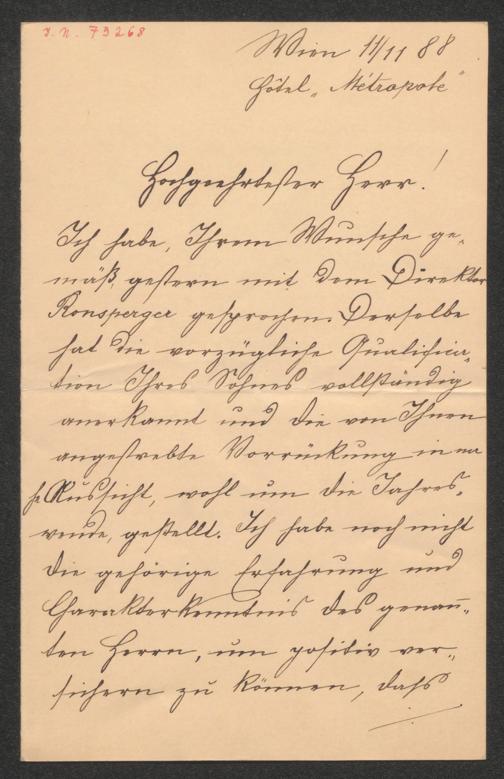 J. N. 79268
Wien 11/11 88
Hôtel „Métropole"
Hochgeehrtester Herr!
Ich habe, Ihrem Wunsche ge-
mäß, gestern mit dem Direktor
Ronsperger gesprochen. Derselbe
hat die vorzügliche Qualifica-
tion Ihres Sohnes vollständig
anerkannt und die von Ihnen
angestrebte Vorrückung in na
he Aussicht, wohl um die Jahres-
wende, gestellt. Ich habe noch nicht
die gehörige Erfahrung und
Charakterkenntnis des genann-
ten Herrn, um positiv ver-
sichern zu können, dass